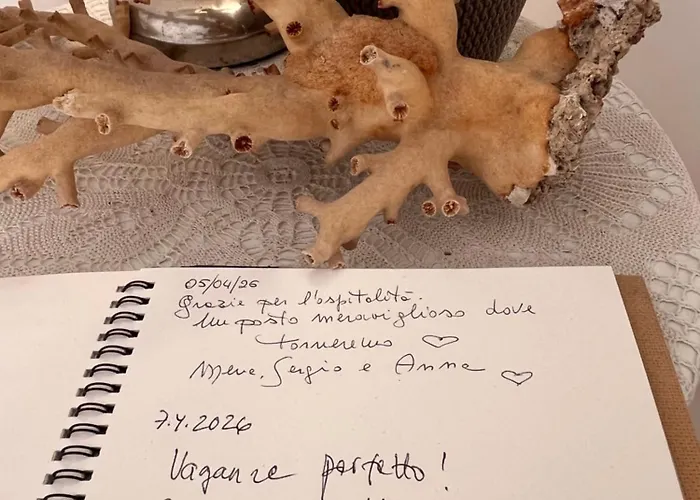 05/04/26
Grazie per l'ospitalità.
Un posto meraviglioso dove
torneremo
Sergio e Anna
7.4.2026
Vaganze perfetto!